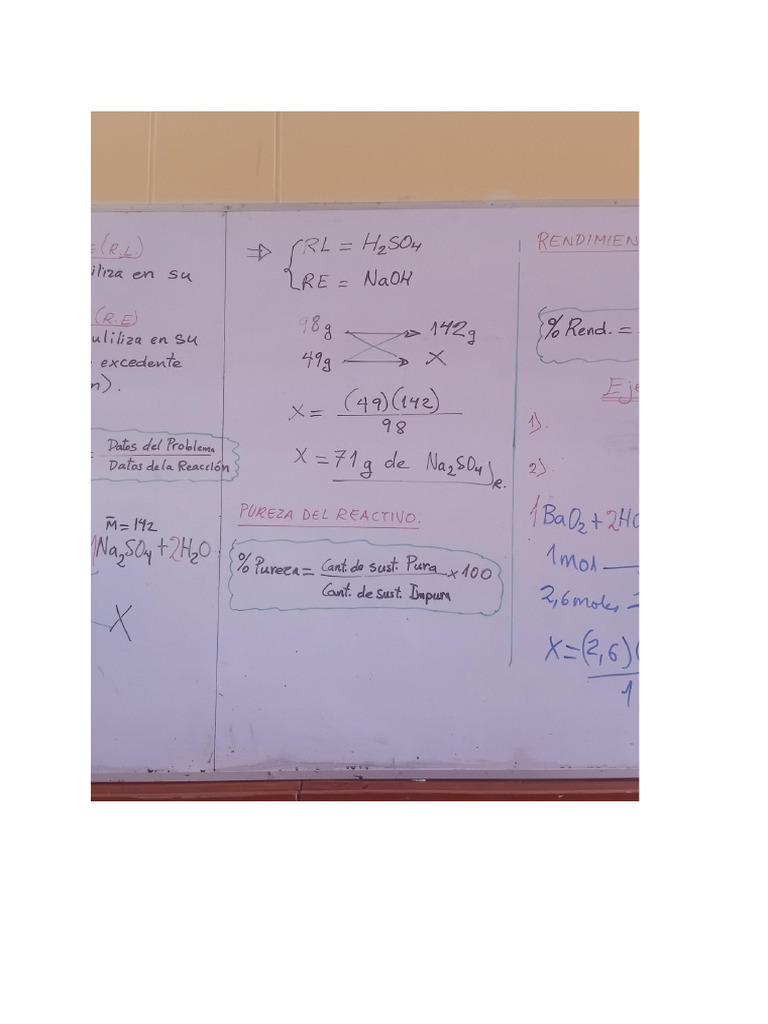 E(R.L.)
iliza en su
(R.E)
uliliza en su
excedente
n).
= Datos del Problema
Datos de la Reacción
M̄=142
1Na₂SO₄+2H₂O
X
⇒ { RL = H₂SO₄
RE = NaOH
98g 142g
49g X
X = (49)(142)
98
X = 71 g de Na₂SO₄ R.
PUREZA DEL REACTIVO.
% Pureza = Cant. de sust. Pura × 100
Cant. de sust. Impura
RENDIMIEN
% Rend. =
Eje
1).
2).
1BaO₂ + 2HC
1mol
2,6moles =
X=(2,6)(
1